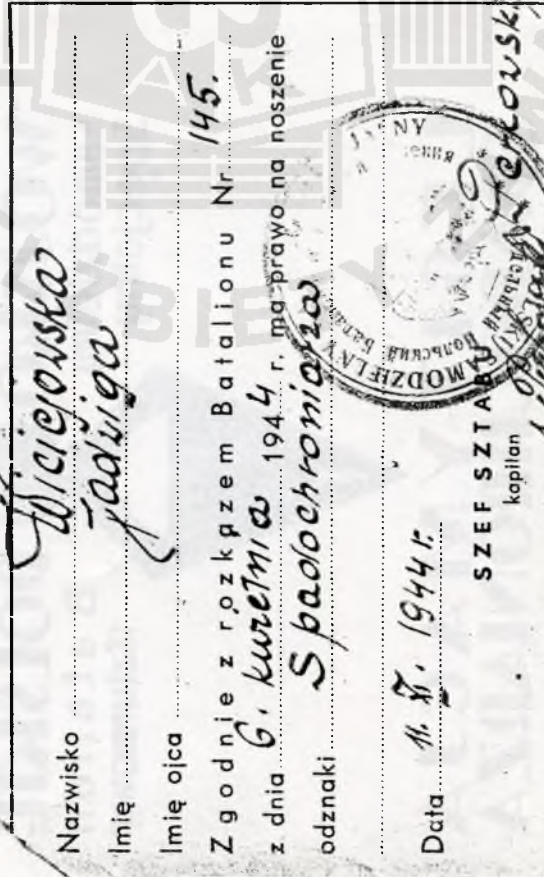 Nazwisko Wiciejowska
Imię Jadwiga
Imię ojca
Zgodnie z rozkazem Batalionu Nr 145.
z dnia 6. kwietnia 1944 r. ma prawo na noszenie
odznaki Spadochroniarza
Data 11. XI. 1944 r.
SZEF SZTABU
kapitan
SAMODZIELNY
Польский
AK